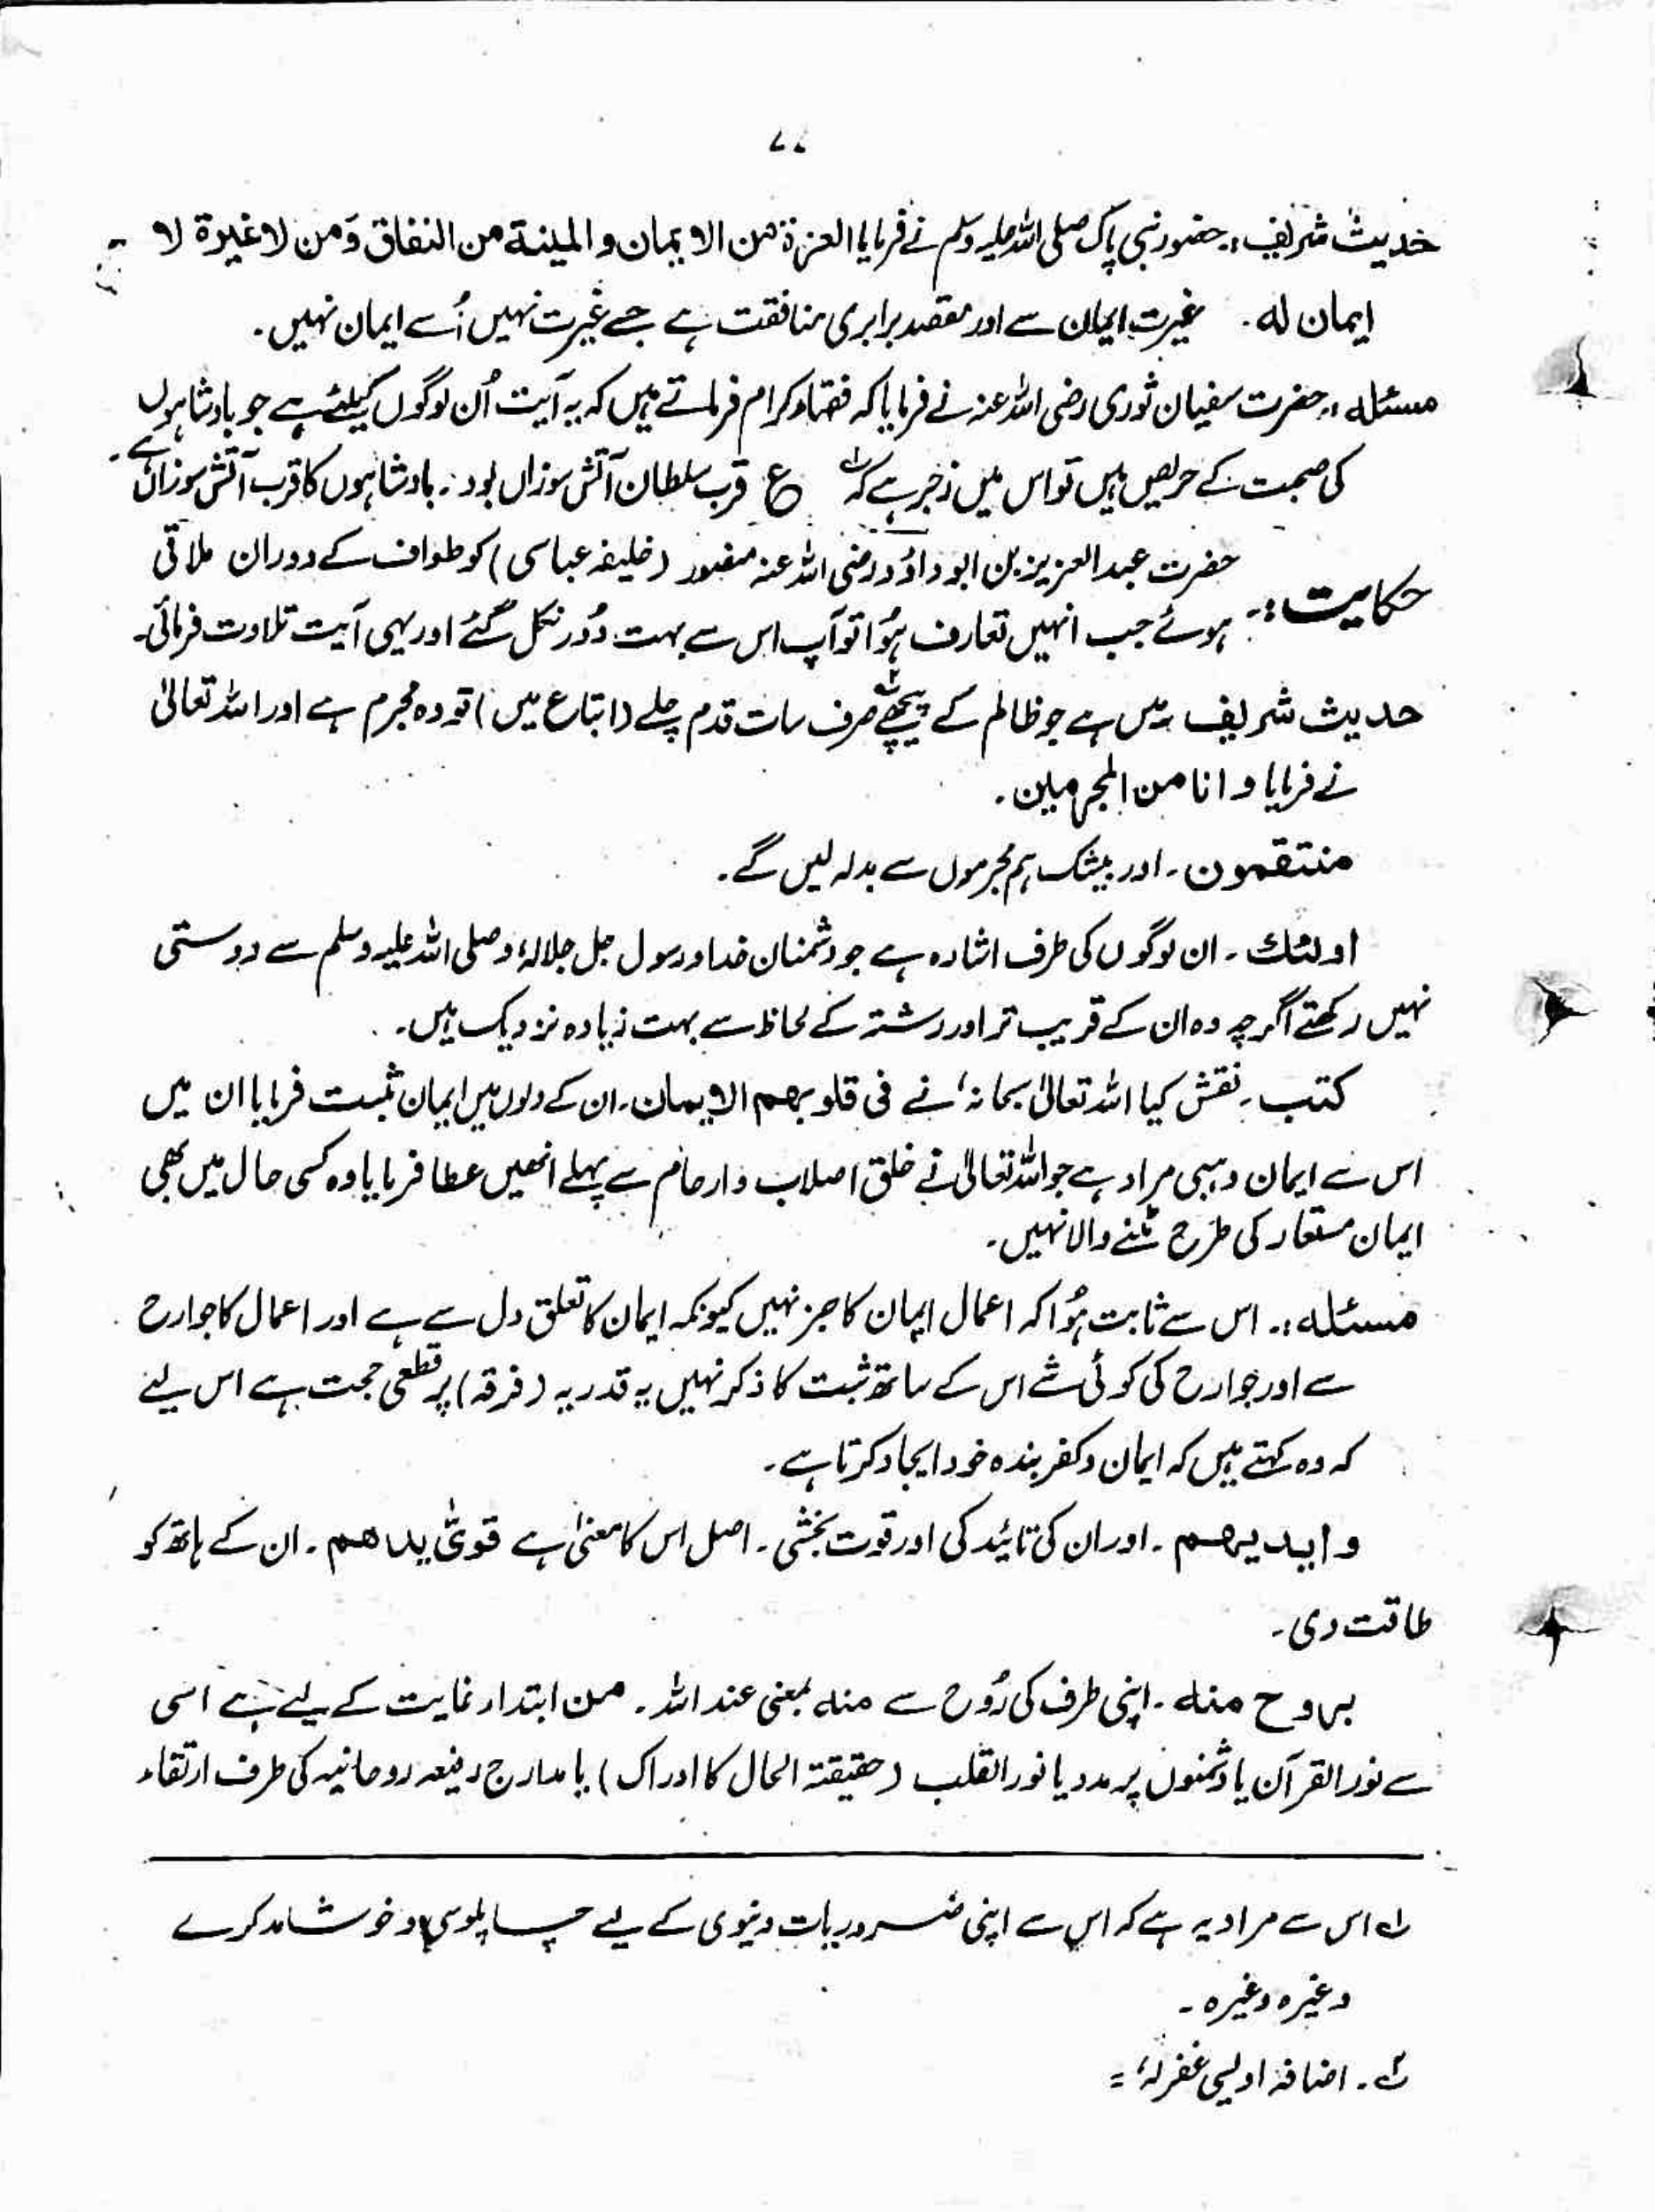 ۷۷
حدیث شریف :۔ حضور نبی پاک صلی اللہ علیہ وسلم نے فرمایا العزۃ من الایمان و المینۃ من النفاق وَمن لا غیرۃ لا
ایمان لہ ۔ غیرت ایمان سے اور مقصد برابری منافقت ہے جسے غیرت نہیں اُسے ایمان نہیں ۔
مسئلہ :۔ حضرت سفیان ثوری رضی اللہ عنہ نے فرمایا کہ فقہاء کرام فرماتے ہیں کہ یہ آیت اُن لوگوں کیلئے ہے جو بادشاہوں
کی صحبت کے حریص ہیں تو اس میں زجر ہے کہ لہ ع قرب سلطان آتش سوزاں بود ۔ بادشاہوں کا قرب آتش سوزاں ہے ۔
حکایت :۔ حضرت عبدالعزیز بن ابوداؤد رضی اللہ عنہ منصور (خلیفہ عباسی) کو طواف کے دوران ملاقی
ہوئے جب انہیں تعارف ہُوا تو آپ اس سے بہت دُور نکل گئے اور یہی آیت تلاوت فرمائی ۔
حدیث شریف میں ہے جو ظالم کے پیچھے صرف سات قدم چلے (اتباع میں) تو وہ مجرم ہے اور اللہ تعالیٰ
نے فرمایا و انا من المجرمین ۔
منتقمون ۔ اور بیشک ہم مجرموں سے بدلہ لیں گے ۔
اولئک ۔ ان لوگوں کی طرف اشارہ ہے جو دشمنان خدا و رسول جل جلالہٗ و صلی اللہ علیہ وسلم سے دوستی
نہیں رکھتے اگرچہ وہ ان کے قریب تر اور رشتہ کے لحاظ سے بہت زیادہ نزدیک ہیں ۔
کتب ۔ نقش کیا اللہ تعالیٰ سبحانہٗ نے فی قلوبہم الایمان ۔ ان کے دلوں میں ایمان ثبت فرمایا ان میں
اس سے ایمان وہبی مراد ہے جو اللہ تعالیٰ نے خلق اصلاب و ارحام سے پہلے انھیں عطا فرمایا وہ کسی حال میں بھی
ایمان مستعار کی طرح ٹلنے والا نہیں ۔
مسئلہ :۔ اس سے ثابت ہُوا کہ اعمال ایمان کا جز نہیں کیونکہ ایمان کا تعلق دل سے ہے اور اعمال کا جوارح
سے اور جوارح کی کوئی شے اس کے ساتھ ثبت کا ذکر نہیں یہ قدریہ (فرقہ) پر قطعی حجت ہے اس لیے
کہ وہ کہتے ہیں کہ ایمان و کفر بندہ خود ایجاد کرتا ہے ۔
و ایدیہم ۔ اور ان کی تائید کی اور قوت بخشی ۔ اصل اس کا معنیٰ ہے قویّٰ یداھم ۔ ان کے ہاتھ کو
طاقت دی ۔
بروح منہ ۔ اپنی طرف کی رُوح سے منہ بمعنی عند اللہ ۔ من ابتداء غایت کے لیے ہے اسی
سے نور القرآن یا دشمنوں پر مدد یا نور القلب (حقیقتہ الحال کا ادراک) یا مدارج رفیعہ روحانیہ کی طرف ارتقاء
لہ اس سے مراد یہ ہے کہ اس سے اپنی ضروریات دنیوی کے لیے چاپلوسی و خوشامد کرے
وغیرہ وغیرہ ۔
ئہ ۔ اضافہ اویسی غفرلہٗ =